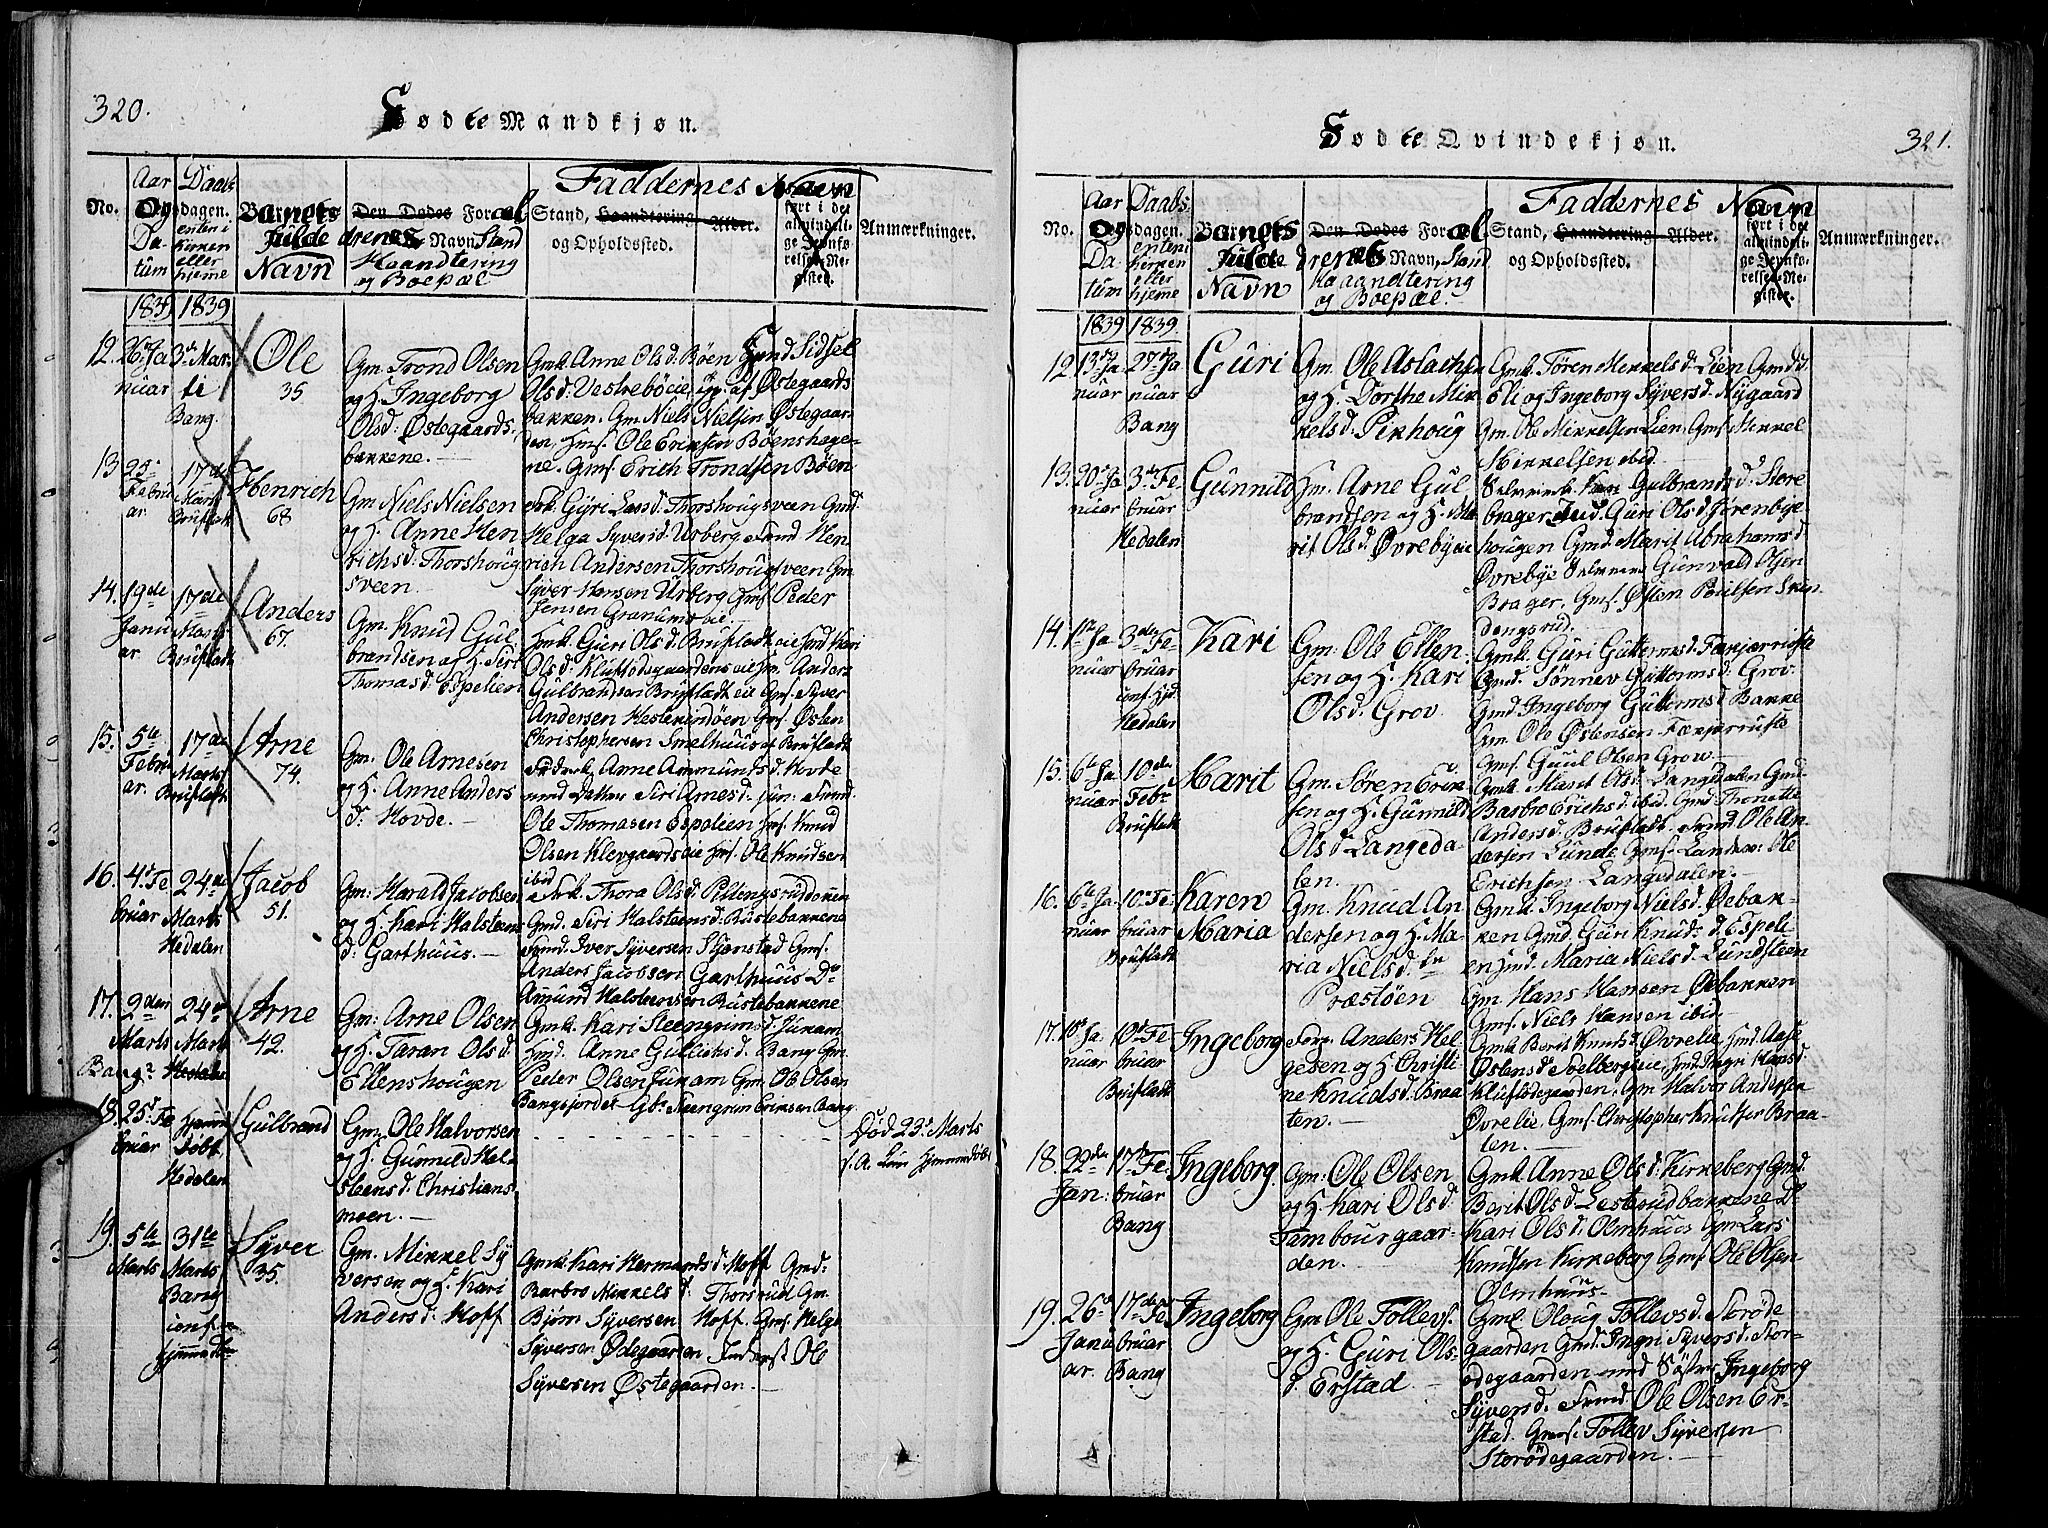 320.
Födte Mandkjøn.
No.
Aar Og Datum
Daabsdagen. enten i Kirken eller hjemme
Barnets Fulde Navn
Den Dødes Forældrenes Navn, Stand Haandtering og Boepæl
Faddernes Navn
Stand, Haandtering Alder.
og Opholdssted.
Anmærkninger.
1839 1839
12. 26de Januar
3de Marti
Bang.
Ole
35
Gm. Trond Olsen
og H. Ingeborg
Olsd. Østegaards
bakkene.
Gmk. Anne Olsd. Bøen Gmd Sidsel
Olsd. Vestrebøeie, og af Østegaards
bakken. Gm. Niels Nielsen Østegaar-
den, Gmf. Ole Eriksen Bøenshage-
ne. Gmf. Erich Trondsen Bøen
13
Februar
17de
Marts
Brufladt
Henrich
68
Gm. Niels Nielsen
og H. Anne Hen
richsd. Thorshoug
sveen
Gyri Larsd. Thorshougsveen Gmd
Helga Syversd. Urberg Hen
rich Andersen Thorshougsveen Gm
Syver Hansen Urberg Gmf. Peder
Jensen Granumseie
14. 19de
Januar
17de
Marts
Brufladt
Anders
67.
Gm. Knud Gul
brandsen og H. Siri
Thomasd. Espelien
Hmk. Guri Olsd. Brufladt eie Hmd Kari
Olsd. Kluftødegaardens eie Hm. Anders
Gulbrandsen Brufladt eie Gmf. Syver
Andersen Hestekindøen Gmf. Østen
Christophersen Smelhuus Brufladt
15. 5te
Februar
17de
Marts
Brufladt
Arne
74.
Gm. Ole Arnesen
og H. Anne Anders
d. Hovde.
Anne Ammundsd. Hovde
Siri Arnesd.
Ole Thomasen Espelien Hmf. Knud
Olsen Klevgaardseie Hmf. Ole Knudsen
ibid
16. 4de Fe
bruar
24de
Marts
Hedalen
Jacob
51.
Gm: Harald Jacobsen
og H. Kari Halsteens
d. Garthuus.
Thora Olsd.
Gmd. Siri Halsteensd. Rustebakkene
Iver Syversen Skjenstad Gmf.
Anders Jacobsen Garthuus Do
Amund Halsteensen Rustebakkene
17. 2den
Marts
Bang
24de
Marts
Hedalen
Arne
42.
Gm: Arne Olsen
og H. Taran Olsd.
Ellenshougen
Gmk. Kari Steengrimsd. Junam
Hmd. Anne Gulliksd. Bang Gm.
Peder Olsen Junam Gm. Ole Olsen
Bangsjordet Steengrim Eriksen Bang
18. 25de Fe
bruar
Hjemme
døbt
Hedalen
Gulbrand
Gm. Ole Halvorsen
og H. Gunnild Hal-
steensd. Christians
moen.
Død 23de Marts
19. 5te
Marts
31te
Marts
Bang
conf.
hjemmedøbt
Syver
35.
Gm. Mikkel Sy
versen og H. Kari
Andersd. Hoff
Gmk. Kari Hermundsd. Hoff Gmd.
Barbro Mikkelsd. Thorsrud Gm.
Bjørn Syversen Hoff. Gmf. Helge
Syversen Ødegaarden Ole
Syversen Østegaarden.
Födte Qvindekjøn.
321.
No.
Aar Og Datum
Daabsdagen. enten i Kirken eller hjemme
Barnets Fulde Navn
Den Dødes Forældrenes Navn, Stand Haandtering og Boepæl.
Faddernes Navn
Stand, Haandtering Alder.
og Opholdssted.
Anmærkninger.
1839 1839.
12 13de Ja
nuar
27de Ja
nuar
Bang
Guri
Gm. Ole Aslachsen
og H. Dorthe Mik
kelsd. Pikhoug
Gmk. Tøren Mikkelsd. Lien Gmd.
Eli og Ingeborg Syversd. Nygaard
Gm. Ole Mikkelsen Lien, Gmf. Mikkel
Mikkelsen ibid.
13. 20de Ja
nuar
3de Fe
bruar
Hedalen
Gunnild
Hm. Arne Gul
brandsen og H. Ma
rit Olsd. Øvrebyeie
Gulbrandsd. Store
brager Guri Olsd. Jørenbye
hougen Gmd. Marit Abrahamsd
Øvrebye Gunvald Olsen
Brager, Gmf. Østen Poulsen Skin
dengsrud.
14. 1ste Ja
nuar
3de Fe
bruar
conf. Hjd.
Hedalen
Kari
Gm: Ole Ellen
sen og H. Kari
Olsd. Grov
Gmk. Guri Guttormsd.
Gmd. Sønnev Guttormsd. Grov.
Gmd Ingeborg Guttormsd. Bakke
Gm. Ole Østensen
Gmf. Guul Olsen Grov
15. 6te Ja
nuar
10de
Febr
Brufladt
Marit
Gm. Søren Erik
sen og H. Gunnild
Olsd Langeda
len.
Gmk. Marit Olsd. Langedalen Gmd.
Barbro Erichsd. ibid. Gmd Thonette
Andersd. Brufladt. Ole An
dersen Lunde Gmf. Ole
Erichsen Langedalen.
16. 6te Ja
nuar
10de Fe
bruar
Brufladt
Karen
Maria
Gm. Knud An
dersen og H. Ma
ria Nielsd.
Præstøen
Gmk. Ingeborg Nielsd. Øebak-
ken Gmd Guri Knudsd. Espeli-
en Hmd. Maria Nielsd. Lundsteen
Gm. Hans Hansen Øebakken
Gmf. Niels Hansen ibid.
17. 10de Ja
nuar
10de Fe
bruar
Brufladt
Ingeborg
Anders Hel
gesen og H. Christi
ne Knudsd. Braa
ten.
Gmk Berit Knudsd. Øvrelie Hmd. Aase
Østensd. Soelbergseie, Hmd Ingri Hansd.
Klufødegaarden, Gm. Halvor Andersen
Øvrelie, Gmf. Christopher Knudsen Braa-
ten.
18. 22de
Jan:
17de Fe
bruar
Bang
Ingeborg
Gm: Ole Olsen
og H. Kari Olsd.
Tambourgaar-
den.
Gmk Anne Olsd. Kirkeberg Gmd.
Berit Olsd. Lesterudbakkene Do
Kari Olsd. Olmhuus Gm. Lars
Knudsen Kirkeberg Gmf. Ole Olsen
Olmhuus.
19. 26de
Janu
ar
17de Fe
bruar
Bang
Ingeborg
Gm Ole Tollevs.
og H. Guri Ols-
d. Erstad
Gmk. Oloug Tollevsd. Storøde
gaarden Gmd. Ingri Syversd. Stor-
ødegaarden med Søster Ingeborg
Syversd. Ole Olsen Er-
stad. Gmf. Tollev Syversen
Storødegaarden.